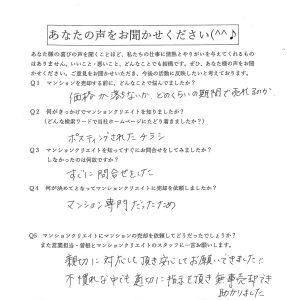 あなたの声をお聞かせください(^^♪
あなた様の喜びの声を聞くことほど、私たちの仕事に情熱とやりがいを与えてくれるもの
はありません。いいこと・悪いこと、どんなことでも結構です。ぜひ、あなた様の声をお聞
かせください。ご意見をお聞かせいただき、今後の活動に反映したいと考えております。
Q1 マンションを売却する前に、どんなことで悩んでましたか?
価格が落ちないか、どのくらいの期間で売れるのか
Q2 何がきっかけでマンションクリエイトを知りましたか?
(どんな検索ワードで当社ホームページにたどり着きましたか?)
ポスティングされたチラシ
Q3 マンションクリエイトを知ってすぐにお問合せをしてみましたか?
しなかったのは何故ですか?
すぐに問合せをした
Q4 何が決めてとなってマンションクリエイトに売却を依頼しましたか?
マンション専門だったため
Q5 マンションクリエイトにマンションの売却を依頼してどうだったでしょうか?
また営業担当・曽根とマンションクリエイトのスタッフに一言お願いします。
親切に対応して頂き安心してお願いできました!
不慣れな中でも適切に指示を頂き無事売却でき
助かりました